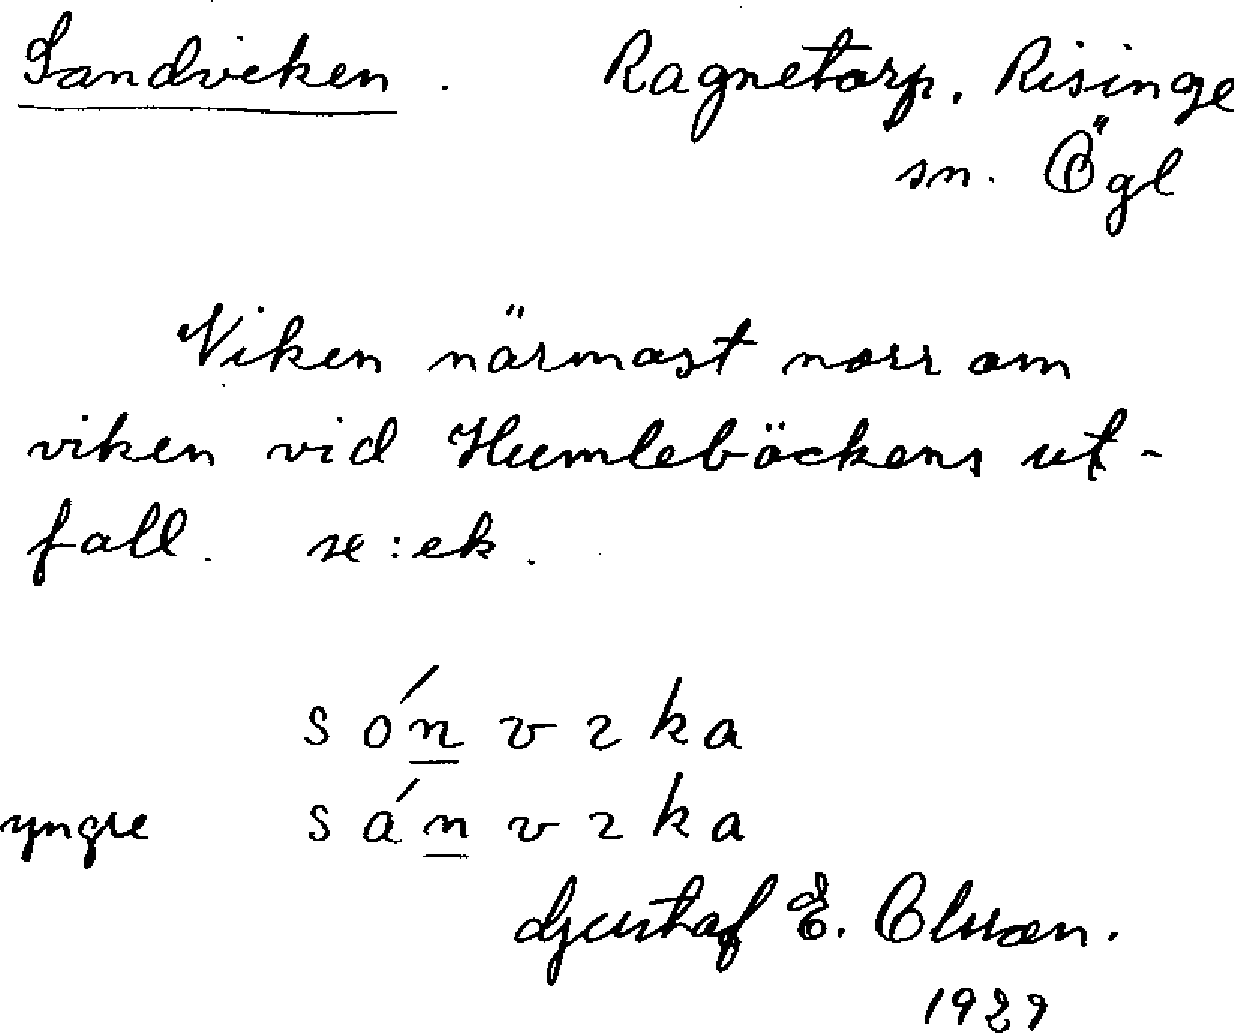 Sandviken. Ragnetorp, Risinge
sn. Ögl
Viken närmast norr om
viken vid Humlebäckens ut-
fall. se:ek.
s ó n̲ v ɩ k a
yngre s á n̲ v ɩ k a
Gustaf E. Olsson.
1929